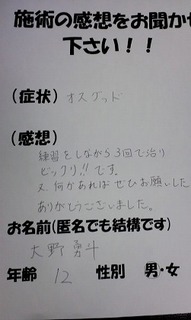 施術の感想をお聞かせ
下さい！！
(症状) オスグッド
(感想)
練習をしながら53回で治り
ビックリ!!です。
又、何かあればぜひお願いした
ありがとうございました。
お名前(匿名でも結構です)
大野 勇斗
年齢 12 性別 男・女